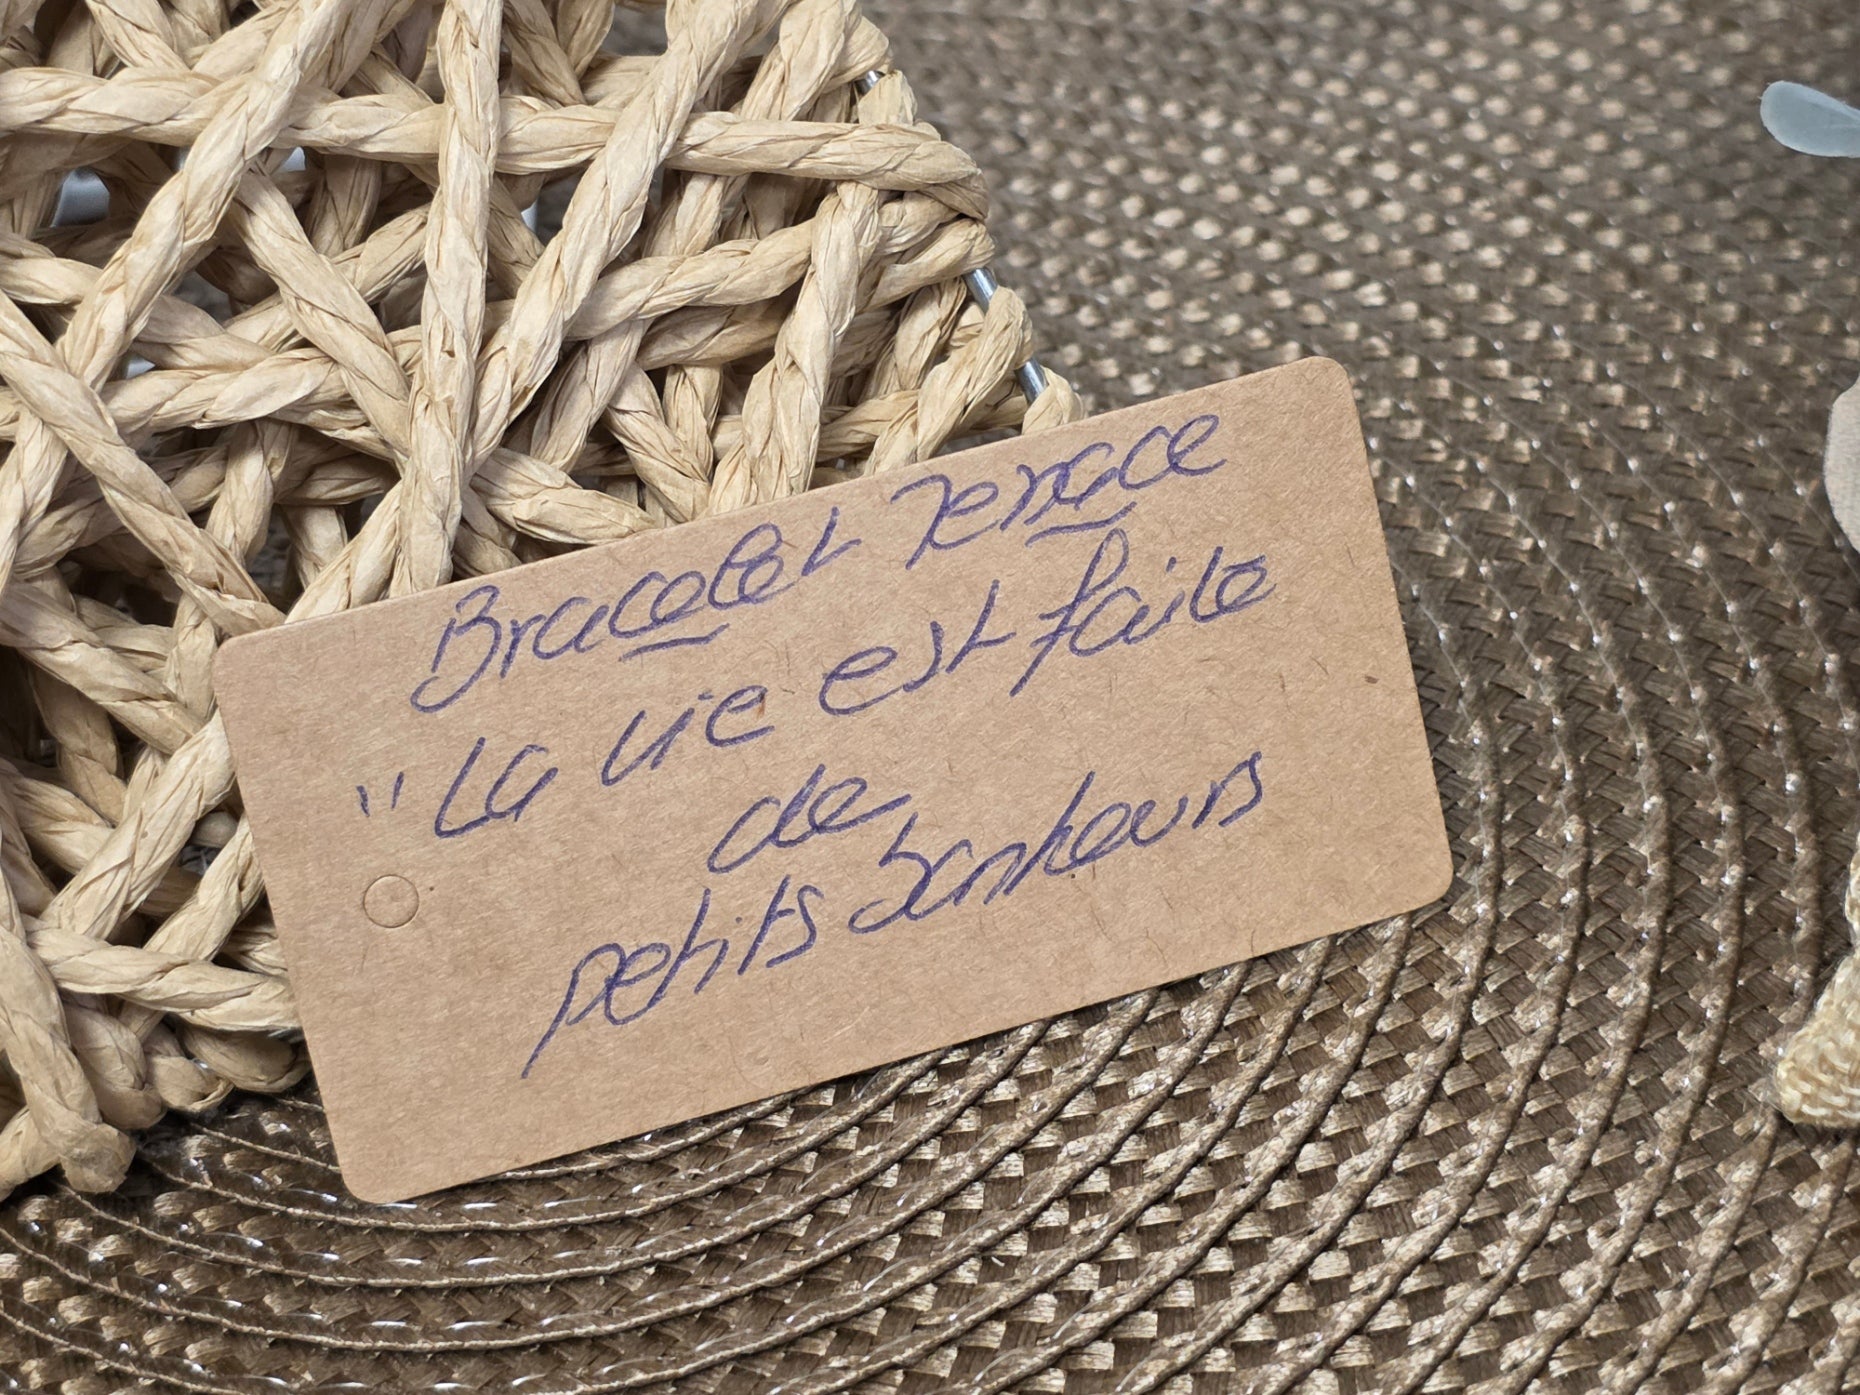 Bracelet Terrace
"La vie est faite
de
petits bonheurs